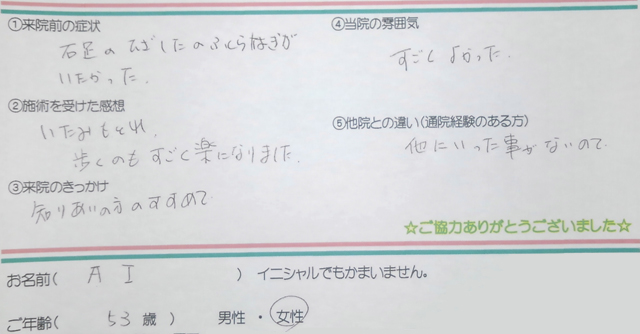 ①来院前の症状
右足のひざしたのふくらはぎが
いたかった.
②施術を受けた感想
いたみもとれ、
歩くのもすごく楽になりました.
③来院のきっかけ
知りあいの方のすすめで
④当院の雰囲気
すごくよかった.
⑤他院との違い(通院経験のある方)
他にいった事がないので
☆ご協力ありがとうございました☆
お名前( A I ) イニシャルでもかまいません。
ご年齢( 53 歳 ) 男性 ・ 女性